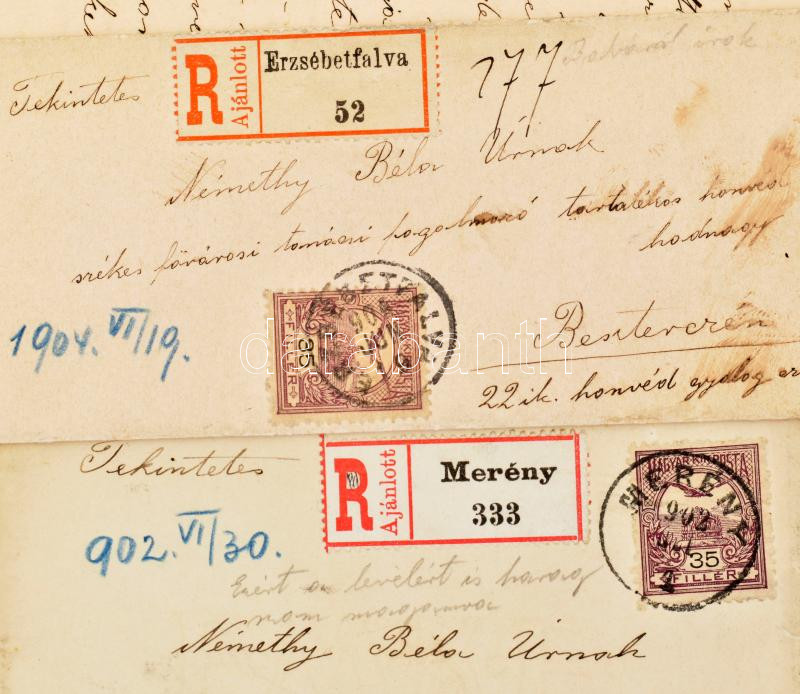 R Ajánlott Erzsébetfalva 52
177
Tekintetes
Némethy Béla Úrnak
székes fővárosi tanácsi fogalmazó tartalékos honvéd
hadnagy
1904. VI/19.
35 FILLÉR
Besztercén
22 ik. honvéd gyalog ez
darabanth
Tekintetes
R Ajánlott Merény 333
MAGYAR KIR. POSTA
35 FILLÉR
MERÉNY
902
902. VI/30.
Ezért a levélért is harag
Némethy Béla Úrnak